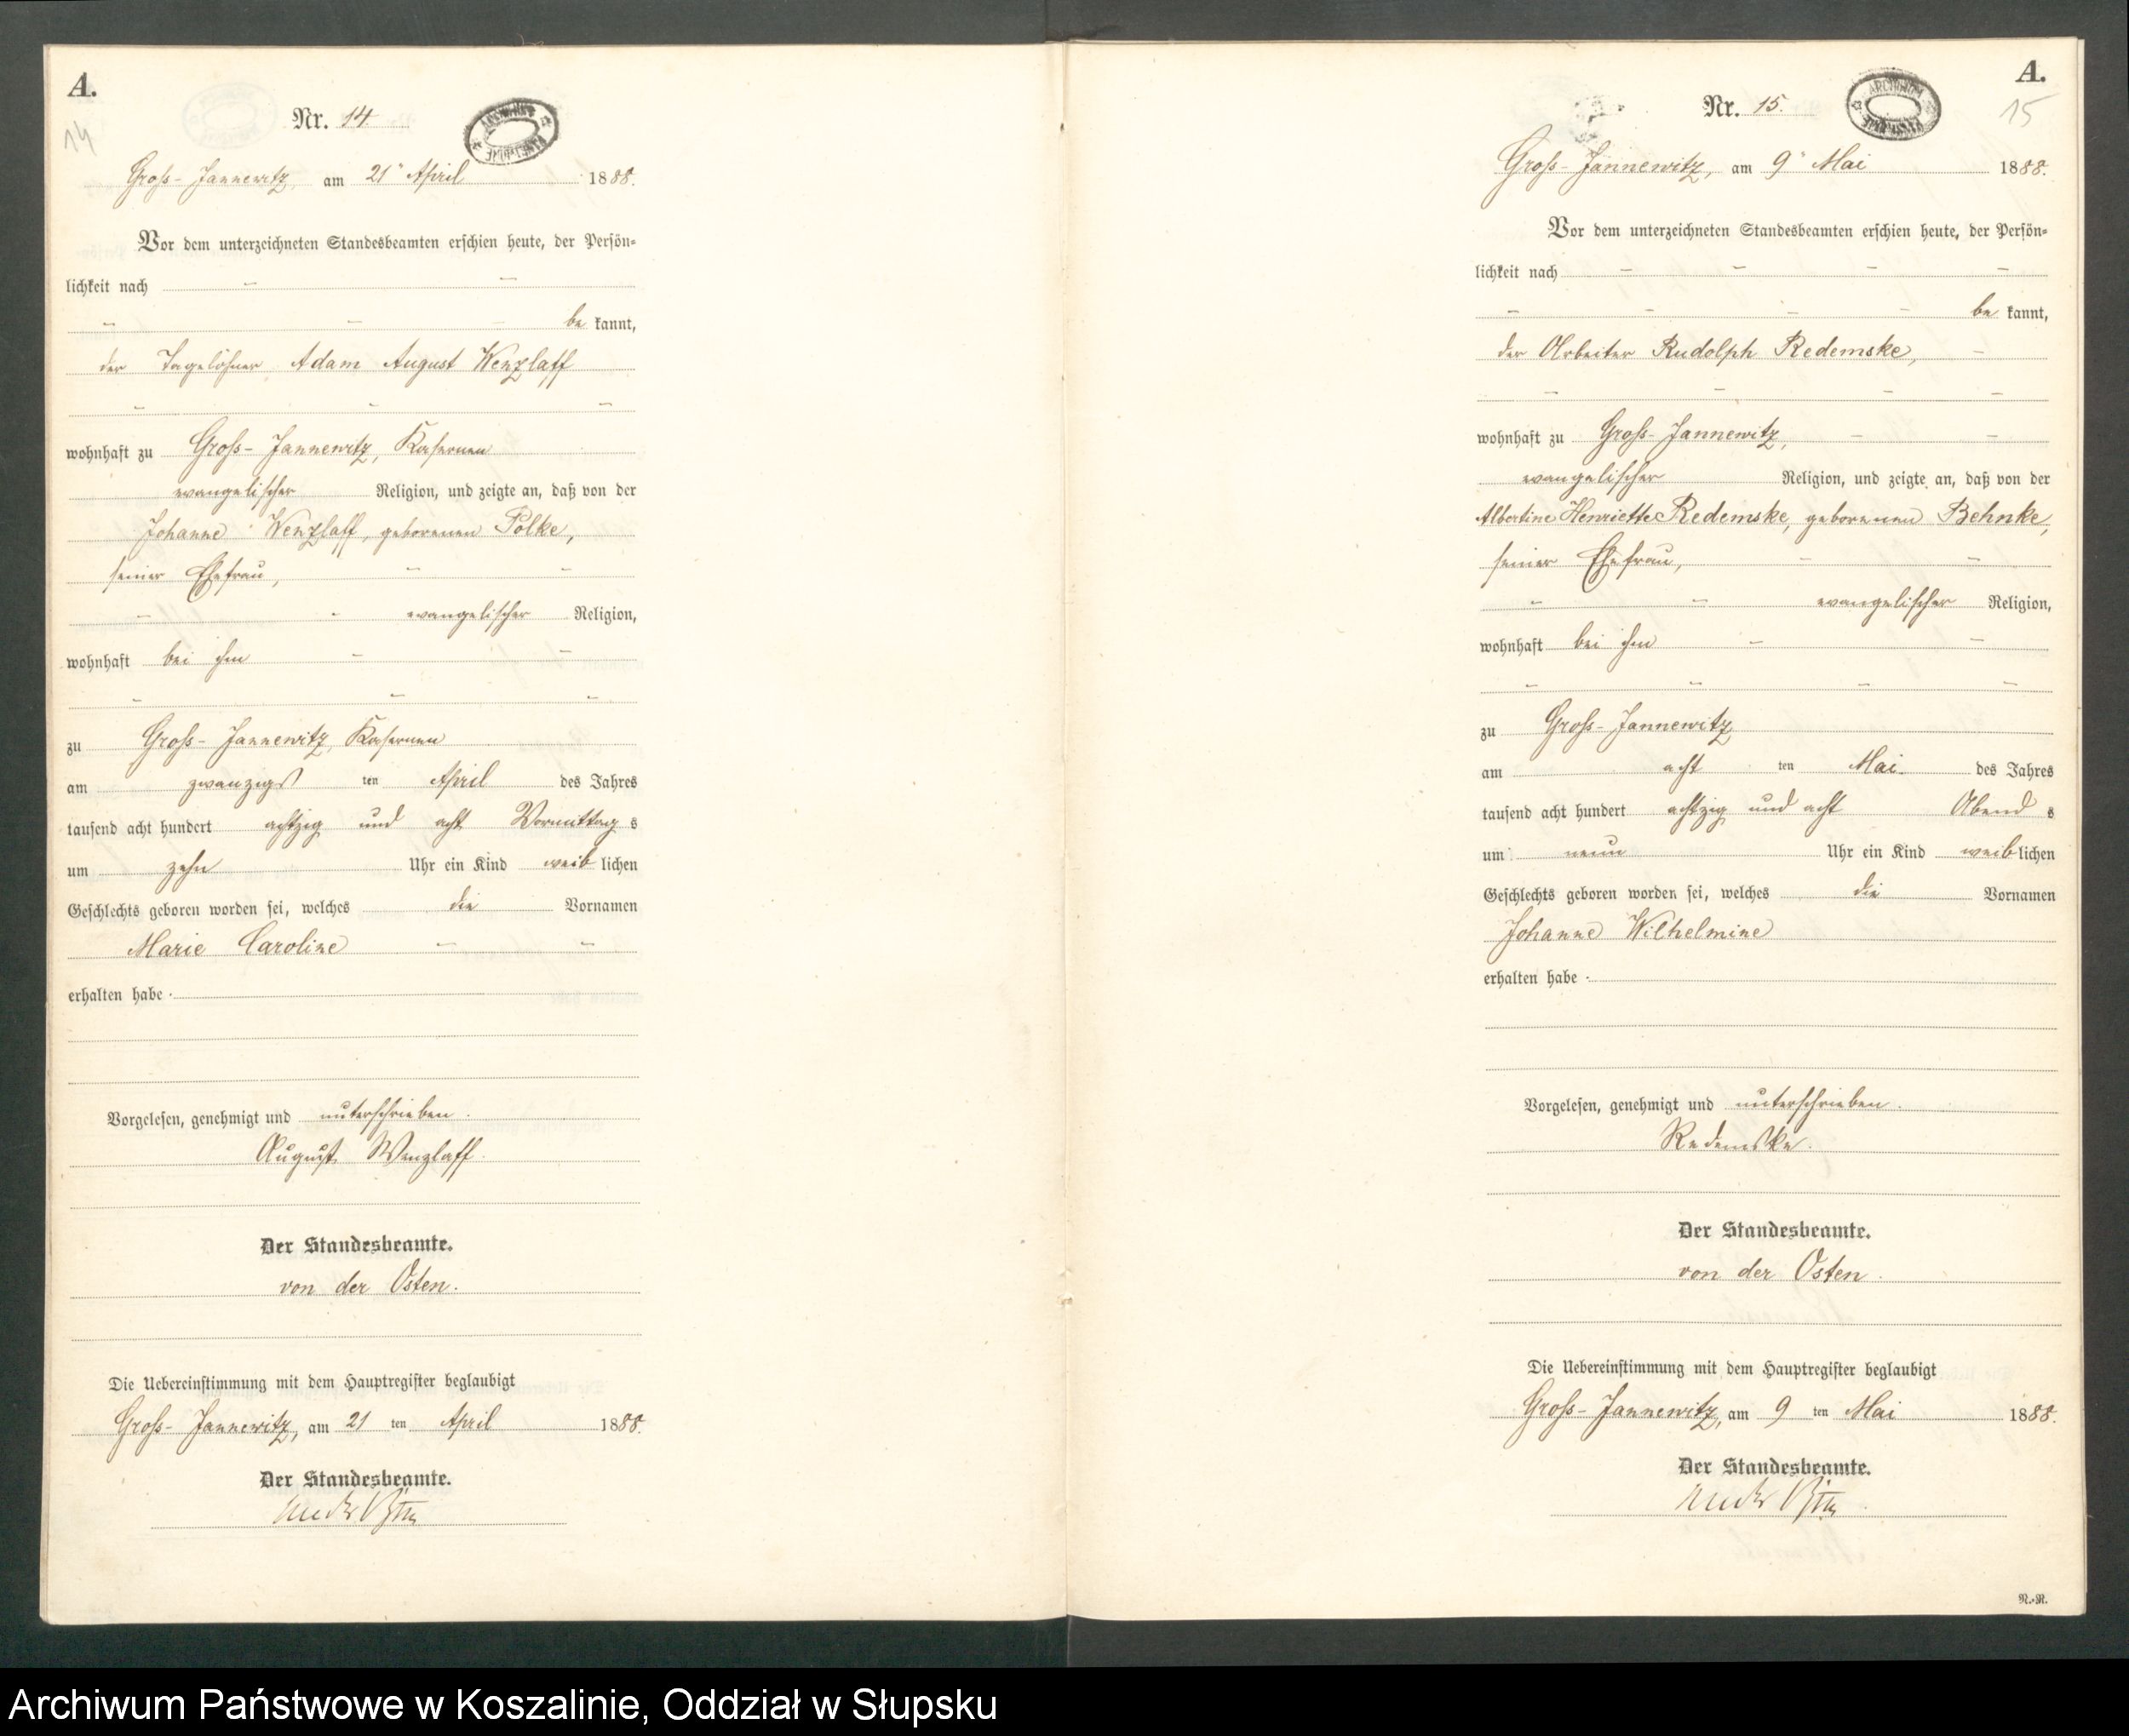 A.
14
Nr. 14.
Groß-Jannewitz, am 21ⁿ April 1888.
Vor dem unterzeichneten Standesbeamten erschien heute, der Persön-
lichkeit nach — —
— — — be kannt,
der Tagelöhner Adam August Wenzlaff
— — —
wohnhaft zu Groß-Jannewitz, Kasernen
evangelischer Religion, und zeigte an, daß von der
Johanne Wenzlaff, geborenen Polke,
seiner Ehefrau, — —
— — evangelischer Religion,
wohnhaft bei ihm — —
— — —
zu Groß-Jannewitz, Kasernen
am zwanzigs ten April des Jahres
tausend acht hundert achtzig und acht Vormittag s
um zehn Uhr ein Kind weib lichen
Geschlechts geboren worden sei, welches die Vornamen
Marie Caroline — —
erhalten habe.
Vorgelesen, genehmigt und unterschrieben.
August Wenzlaff.
Der Standesbeamte.
von der Osten.
Die Uebereinstimmung mit dem Hauptregister beglaubigt
Groß-Jannewitz, am 21 ten April 1888.
Der Standesbeamte.
A.
15
Nr. 15.
ARCHIWUM
Groß-Jannewitz, am 9ⁿ Mai 1888.
Vor dem unterzeichneten Standesbeamten erschien heute, der Persön-
lichkeit nach — — — —
— — — — be kannt,
der Arbeiter Rudolph Redemske, —
— — — —
wohnhaft zu Groß-Jannewitz, — —
evangelischer Religion, und zeigte an, daß von der
Albertine Henriette Redemske, geborenen Behnke,
seiner Ehefrau, — —
— — evangelischer Religion,
wohnhaft bei ihm — —
— — — —
zu Groß-Jannewitz
am acht ten Mai des Jahres
tausend acht hundert achtzig und acht Abend s
um neun Uhr ein Kind weib lichen
Geschlechts geboren worden sei, welches die Vornamen
Johanne Wilhelmine
erhalten habe.
Vorgelesen, genehmigt und unterschrieben.
Redemske.
Der Standesbeamte.
von der Osten.
Die Uebereinstimmung mit dem Hauptregister beglaubigt
Groß-Jannewitz, am 9 ten Mai 1888.
Der Standesbeamte.
N.-N.
Archiwum Państwowe w Koszalinie, Oddział w Słupsku